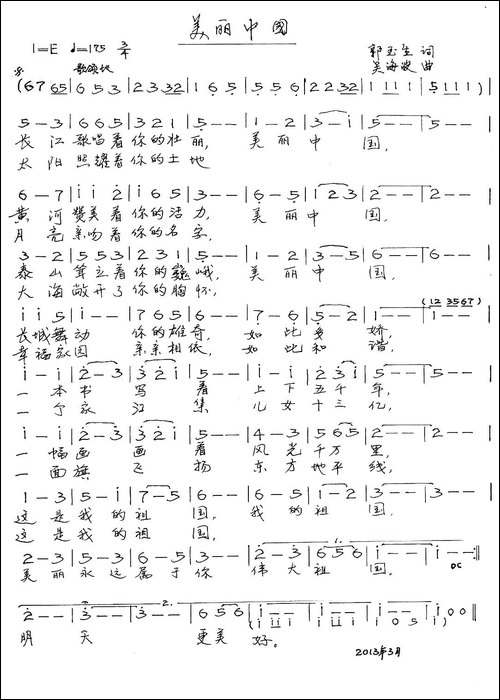 美丽中国
1=E ♩=175 3/4
郭玉生 词
歌颂地
吴海波 曲
(67 65 | 6 5 3 | 2 3 32 | 1 6 5 | 5 5 6 | 2 2 32 | 1 1 1 1 | 5 1 1 1 )
5 - 3 | 6 6 5 | 3 2 1 | 5 - - | 1 - 2 | 3 - 1 | 5 - - | 5 - -
长江歌唱着你的壮丽, 美丽中国,
太阳照耀着你的土地
6 - 7 | i i 2 | i 6 5 | 3 - - | 6 - 5 | 1 2 3 | 2 - - | 2 - -
黄河赞美着你的活力, 美丽中国,
月亮亲吻着你的名字,
3 - 2 | 5 5 3 | 2 3 1 | 5 - - | 1 - 2 | 3 - 5 | 6 - - | 6 - -
泰山耸立着你的巍峨, 美丽中国,
大海敞开了你的胸怀,
(12 3567)
i i 5 | i - - | 1 6 5 | 6 - - | 7 - 6 | 5 - 2 | 1 - - | 1 - -
长城舞动你的雄奇, 如此多娇
幸福家园亲亲相依, 如此和谐,
i - i | 2 - 3 | 3 2 i | 5 - - | i - i | 2 - 3 | 2 - - | 2 - -
一本书写着上下五千年,
一个家汇集儿女十三亿,
i - i | 2 - 3 | 3 2 i | 5 - - | 4 - 3 | 5 6 5 | 2 - - | 2 - -
一幅画画着风光千万里,
一面旗飞扬东方地平线,
1 - 3 | 5 - i | 7 - 5 | 6 - - | 6 - 5 | 1 - 2 | 3 - - | 3 - -
这是我的祖国, 我的祖国,
这是我的祖国,
2 - 3 | 5 - 3 | 6 - 5 | 3 - - | 2 - 3 | 6 5 5 | i - - | i - - :||
美丽永远属于你 伟大祖国。
DC
2 - - | 3 - - | 3 - 2 | 6 5 6 | i - - | i - - | i - - | i 0 0 ||
明天更美好。
2013年3月